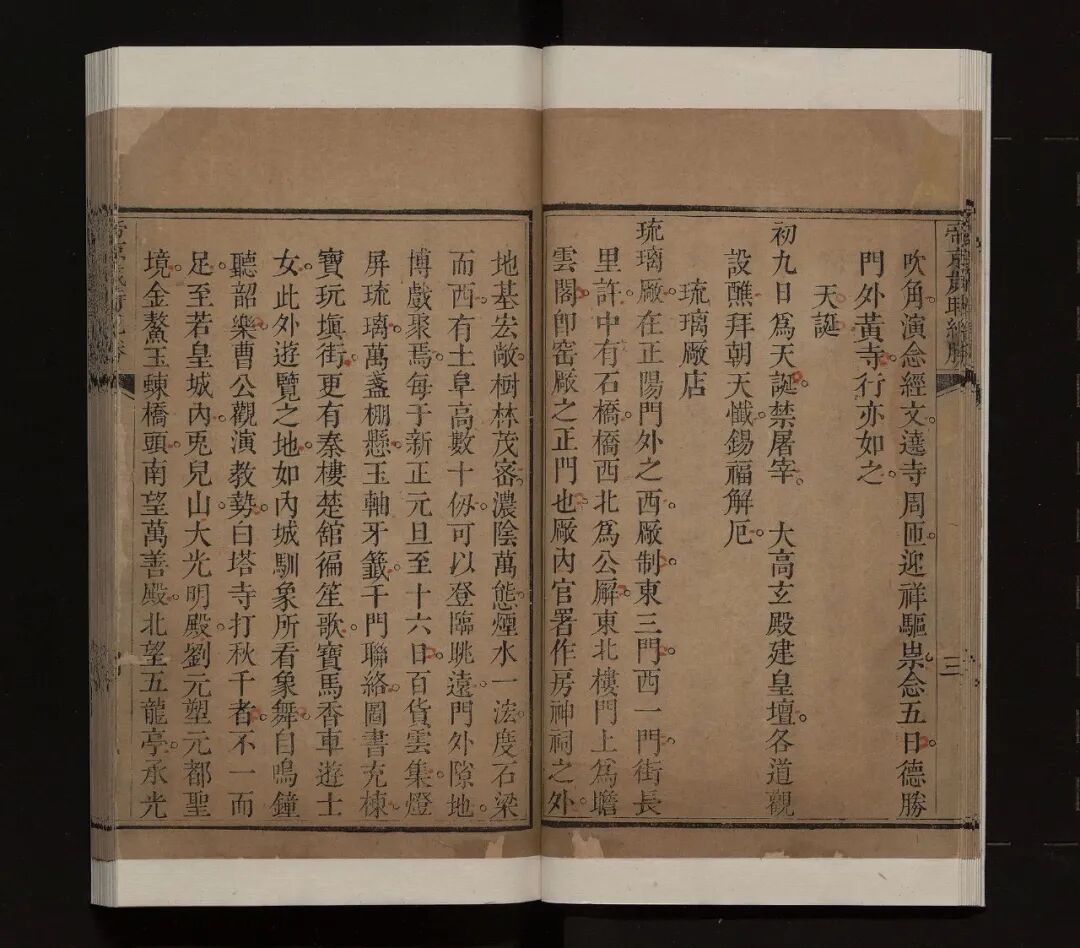 吹角演念經文遶寺周匝迎祥驅祟念五日德勝
門外黃寺行亦如之
天誕
初九日爲天誕禁屠宰 大高玄殿建皇壇各道觀
設醮拜朝天懺錫福解厄
琉璃厰店
琉璃厰在正陽門外之西厰制東三門西一門街長
里許中有石橋橋西北爲公廨東北樓門上爲瞻
雲閣卽窑厰之正門也厰內官署作房神祠之外
地基宏敞樹林茂密濃陰萬態煙水一泓度石梁
而西有土阜高數十仞可以登臨眺遠門外隙地
博戲聚焉每于新正元旦至十六日百貨雲集燈
屏琉璃萬盞棚懸玉軸牙籤千門聯絡圖書充棟
寶玩塡街更有秦樓楚舘徧笙歌寶馬香車遊士
女此外遊覽之地如內城馴象所看象舞自鳴鐘
聽韶樂曹公觀演教勢白塔寺打秋千者不一而
足至若皇城內兎兒山大光明殿劉元塑元都聖
境金鰲玉蝀橋頭南望萬善殿北望五龍亭承光